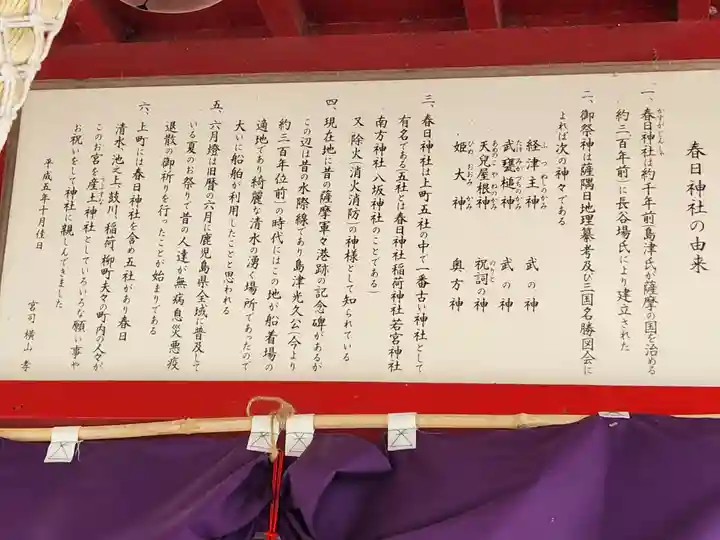 春日神社の由来
一、春日神社は約千年前島津氏が薩摩の国を治める
かすがじんじゃ
約三百年前に長谷場氏により建立された
二、御祭神は薩隅日地理纂考及び三国名勝図会に
よれば次の神々である
経津主神 武の神
ふつぬしのかみ
武甕槌神 武の神
たけみかつちのかみ
天兒屋根神 祝詞の神
あめのこやねのかみ のりと
姫大神 奥方神
ひめおおかみ
三、春日神社は上町五社の中で一番古い神社として
有名である(五社とは春日神社稲荷神社若宮神社
南方神社八坂神社のことである)
又、除火(消火消防)の神様として知られている
四、現在地に昔の薩摩軍々港跡の記念碑があるが
この辺は昔の水際線であり島津光久公(今より
約三百年位前)の時代にはこの地が船着場の
適地であり綺麗な清水の湧く場所であったので
大いに船舶が利用したことと思われる
五、六月燈は旧暦の六月に鹿児島県全域に普及して
いる夏のお祭りで昔の人達が無病息災悪疫
退散の御祈りを行ったことが始まりである
六、上町には春日神社を含め五社があり春日
清水、池之上、鼓川、稲荷、柳町夫々の町内の人々が
このお宮を産土神社としていろいろな願い事や
お祝いをして神社に親しんできました
平成五年十月佳日
宮司 横山 孝